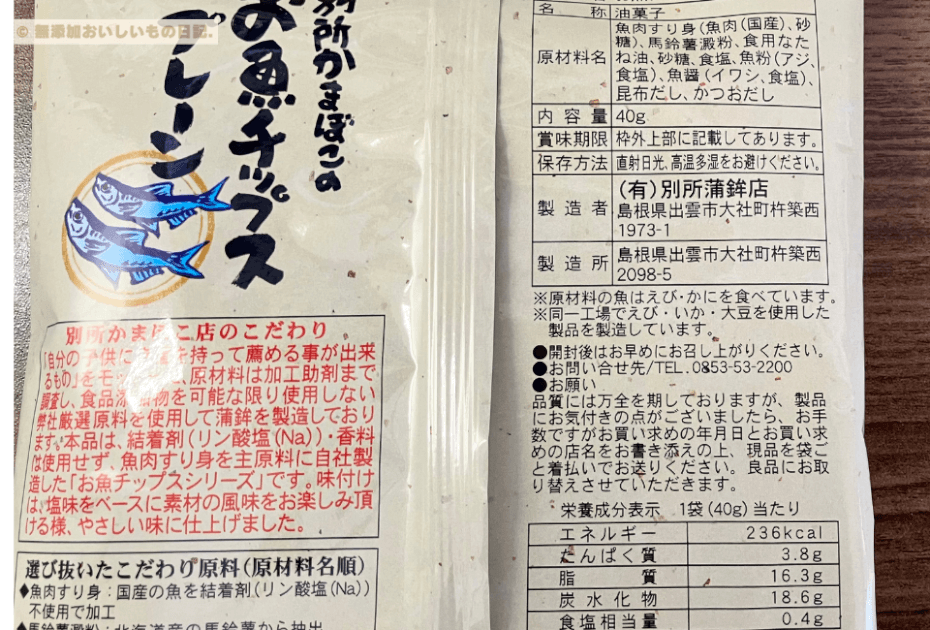 © 無添加おいしいもの日記.
別所かまぼこの
お魚チップス
プレーン
別所かまぼこ店のこだわり
「自分の子供に を持って薦める事が出来
るもの」をモッ 、原材料は加工助剤まで
調査し、食品添加物を可能な限り使用しない
弊社厳選原料を使用して蒲鉾を製造しており
ます。本品は、結着剤(リン酸塩(Na))・香料
は使用せず、魚肉すり身を主原料に自社製
造した「お魚チップスシリーズ」です。味付け
は、塩味をベースに素材の風味をお楽しみ頂
ける様、やさしい味に仕上げました。
選び抜いたこだわり原料(原材料名順)
◆魚肉すり身:国産の魚を結着剤(リン酸塩(Na))
不使用で加工
◆馬鈴薯澱粉:北海道産の馬鈴薯から抽出
名称 油菓子
原材料名 魚肉すり身(魚肉(国産)、砂
糖)、馬鈴薯澱粉、食用なた
ね油、砂糖、食塩、魚粉(アジ、
食塩)、魚醤(イワシ、食塩)、
昆布だし、かつおだし
内容量 40g
賞味期限 枠外上部に記載してあります。
保存方法 直射日光、高温多湿をお避けください。
製造者 (有)別所蒲鉾店
島根県出雲市大社町杵築西
1973-1
製造所 島根県出雲市大社町杵築西
2098-5
※原材料の魚はえび・かにを食べています。
※同一工場でえび・いか・大豆を使用した
製品を製造しています。
●開封後はお早めにお召し上がりください。
●お問い合せ先/TEL.0853-53-2200
●お願い
品質には万全を期しておりますが、製品
にお気付きの点がございましたら、お手
数ですがお買い求めの年月日とお買い求
めの店名をお書き添えの上、現品を袋ご
と着払いでお送りください。良品にお取
り替えさせていただきます。
栄養成分表示 1袋(40g)当たり
エネルギー 236kcal
たんぱく質 3.8g
脂質 16.3g
炭水化物 18.6g
食塩相当量 0.4g